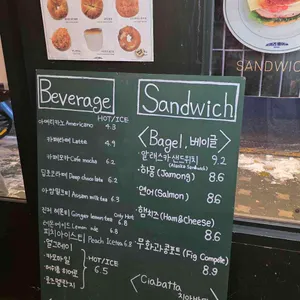 SANDWICH
Beverage
HOT/ICE
아메리카노 Americano 4.3
카페라떼 Latte 4.9
카페모카 Cafe mocha 6.2
딥초코라떼 Deep chocolate 6.2
아쌈밀크티 Assam milk tea 6.3
진저 레몬티 Ginger lemon tea Only Hot 6.8
피치아이스티 Peach Ice tea 6.2
얼그레이
캐모마일
HOT/ICE
6.5
Sandwich
<Bagel, 베이글>
알래스카샌드위치 9.2
(Alaska Sandwich)
· 하몽 (Jamong) 8.6
· 연어 (Salmon) 8.6
· 햄치즈 (Ham&Cheese) 8.6
· 무화과콩포트 (Fig Compote) 8.9
<Ciabatta,